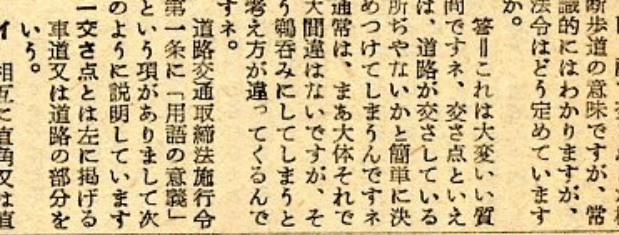 断歩道の意味ですが、常
識的にはわかりますが、
法令はどう定めています
か。
答＝これは大変いい質
問ですネ、交さ点といえ
ば、道路が交さしている
所ぢやないかと簡単に決
めつけてしまうんですネ
通常は、まあ大体それで
大間違はないですが、そ
う鵜呑みにしてしまうと
考え方が違ってくるんで
すネ。
道路交通取締法施行令
第一条に「用語の意義」
という項がありまして次
のように説明しています
一交さ点とは左に掲げる
車道又は道路の部分を
いう。
イ 相互に直角又は直